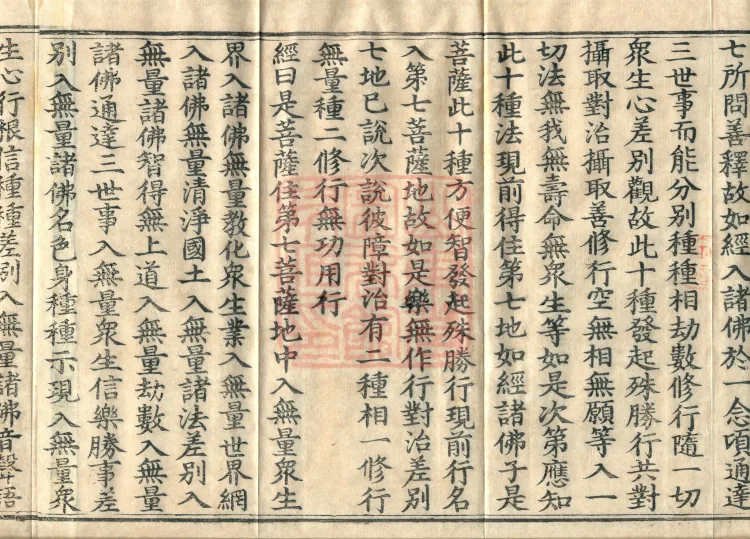 七所問善釋故如經入諸佛於一念頃通達
三世事而能分別種種相劫數修行隨一切
眾生心差別觀故此十種發起殊勝行共對
攝取對治攝取善修行空無相無願等入一
切法無我無壽命無眾生等如是次第應知
此十種法現前得住第七地如經諸佛子是
菩薩此十種方便智發起殊勝行現前行名
入第七菩薩地故如是樂無作行對治差別
七地已說次說彼障對治有二種相一修行
無量種二修行無功用行
經曰是菩薩住第七菩薩地中入無量眾生
界入諸佛無量教化眾生業入無量世界網
入諸佛無量清淨國土入無量諸法差別入
無量諸佛智得無上道入無量劫數入無量
諸佛通達三世事入無量眾生信樂勝事差
別入無量諸佛名色身種種示現入無量眾
生心行根信種種差別入無量諸佛音聲語